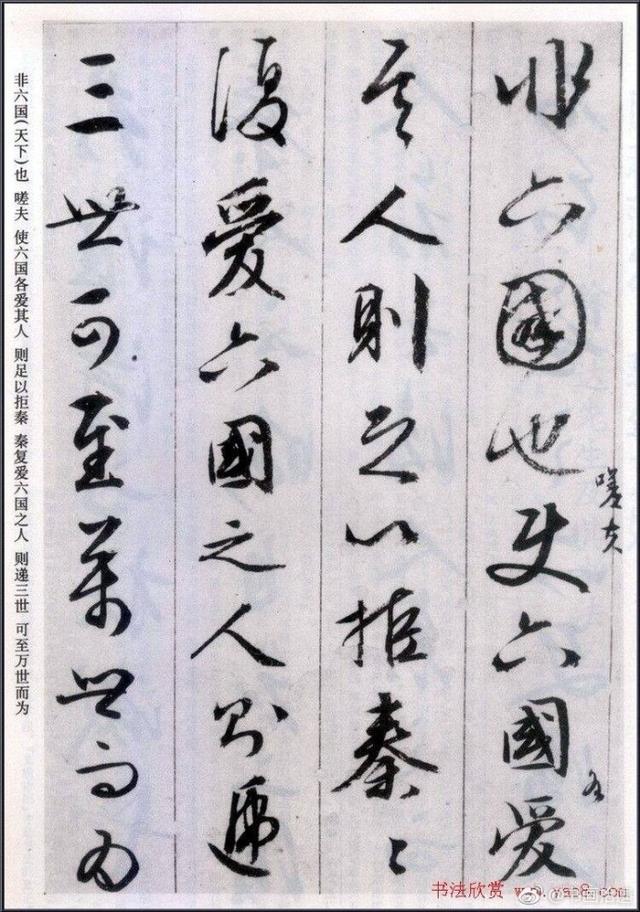 非六國也使六國愛
嗟夫
各
其人則足以拒秦〻
復愛六國之人則遞
三世可至萬世而為
非六国(天下)也 嗟夫 使六国各爱其人 则足以拒秦 秦复爱六国之人 则递三世 可至万世而为
书法欣赏 www.yac8.com